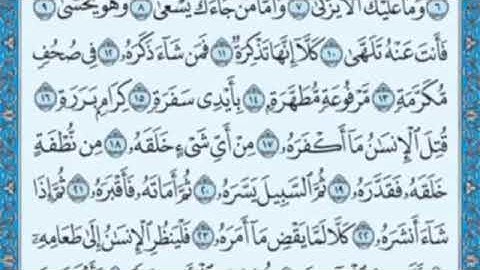 ۝٦ وَمَا عَلَيْكَ أَلَّا يَزَّكَّىٰ ۝٧ وَأَمَّا مَن جَآءَكَ يَسْعَىٰ ۝٨ وَهُوَ يَخْشَىٰ ۝٩
فَأَنتَ عَنْهُ تَلَهَّىٰ ۝١٠ كَلَّآ إِنَّهَا تَذْكِرَةٌ ۝١١ فَمَن شَآءَ ذَكَرَهُۥ ۝١٢ فِى صُحُفٍ
مُّكَرَّمَةٍ ۝١٣ مَّرْفُوعَةٍ مُّطَهَّرَةٍۭ ۝١٤ بِأَيْدِى سَفَرَةٍ ۝١٥ كِرَامٍۭ بَرَرَةٍ ۝١٦
قُتِلَ ٱلْإِنسَـٰنُ مَآ أَكْفَرَهُۥ ۝١٧ مِنْ أَىِّ شَىْءٍ خَلَقَهُۥ ۝١٨ مِن نُّطْفَةٍ
خَلَقَهُۥ فَقَدَّرَهُۥ ۝١٩ ثُمَّ ٱلسَّبِيلَ يَسَّرَهُۥ ۝٢٠ ثُمَّ أَمَاتَهُۥ فَأَقْبَرَهُۥ ۝٢١ ثُمَّ إِذَا
شَآءَ أَنشَرَهُۥ ۝٢٢ كَلَّا لَمَّا يَقْضِ مَآ أَمَرَهُۥ ۝٢٣ فَلْيَنظُرِ ٱلْإِنسَـٰنُ إِلَىٰ طَعَامِهِۦٓ